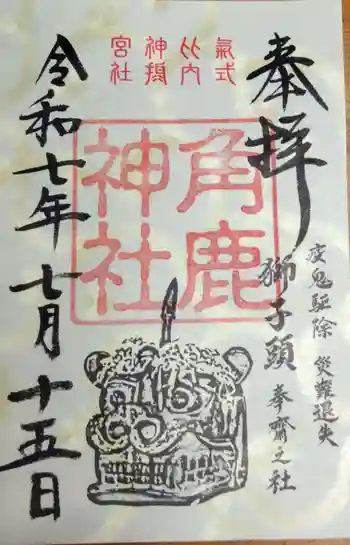 奉拝
疫鬼駆除 災難退失
獅子頭 奉齋之社
氣比神宮
式内摂社
角鹿神社
令和七年七月十五日